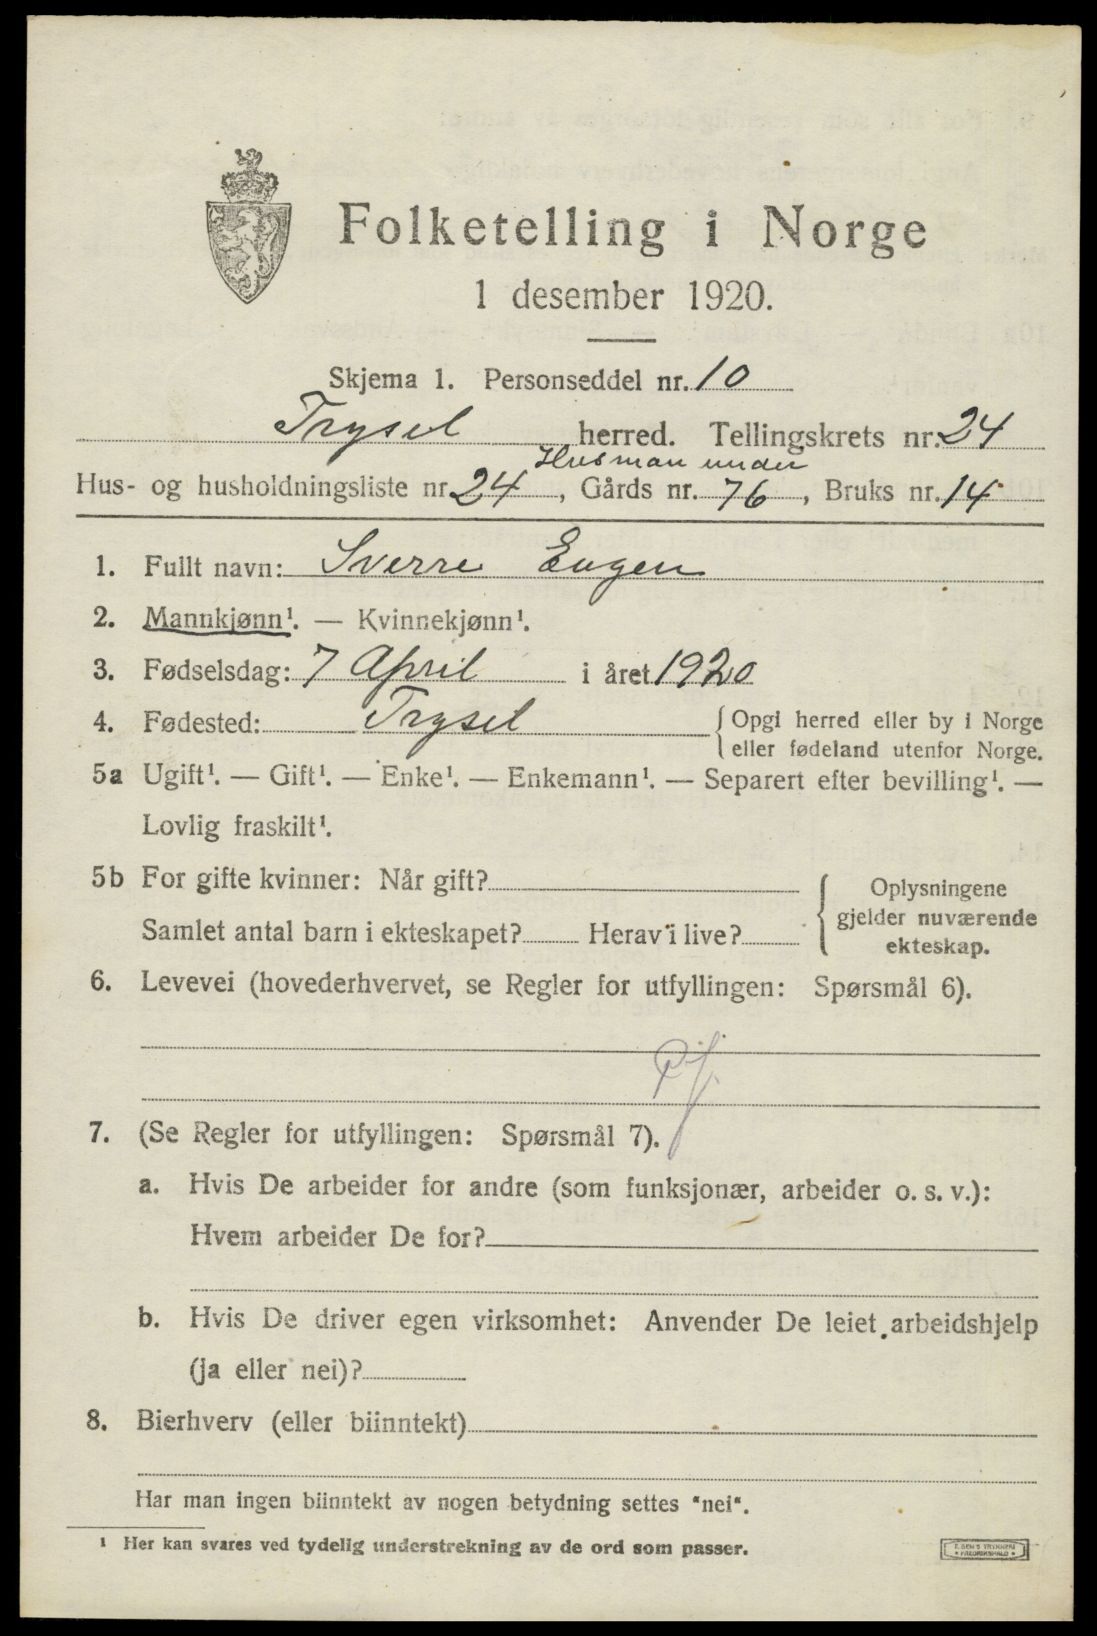 Folketelling i Norge
1 desember 1920.
Skjema 1. Personseddel nr. 10
Trysil herred. Tellingskrets nr. 24
Husman under
Hus- og husholdningsliste nr. 24, Gårds nr. 76, Bruks nr. 14
1. Fullt navn: Sverre Eugen
2. Mannkjønn¹. — Kvinnekjønn¹.
3. Fødselsdag: 7 April i året 1920
4. Fødested: Trysil {Opgi herred eller by i Norge
eller fødeland utenfor Norge.
5a Ugift¹. — Gift¹. — Enke¹. — Enkemann¹. — Separert efter bevilling¹. —
Lovlig fraskilt¹.
5b For gifte kvinner: Når gift?
Samlet antal barn i ekteskapet? Herav i live?
{Oplysningene
gjelder nuværende
ekteskap.
6. Levevei (hovederhvervet, se Regler for utfyllingen: Spørsmål 6).
7. (Se Regler for utfyllingen: Spørsmål 7).
a. Hvis De arbeider for andre (som funksjonær, arbeider o. s. v.):
Hvem arbeider De for?
b. Hvis De driver egen virksomhet: Anvender De leiet arbeidshjelp
(ja eller nei)?
8. Bierhverv (eller biinntekt)
Har man ingen biinntekt av nogen betydning settes "nei".
¹ Her kan svares ved tydelig understrekning av de ord som passer.